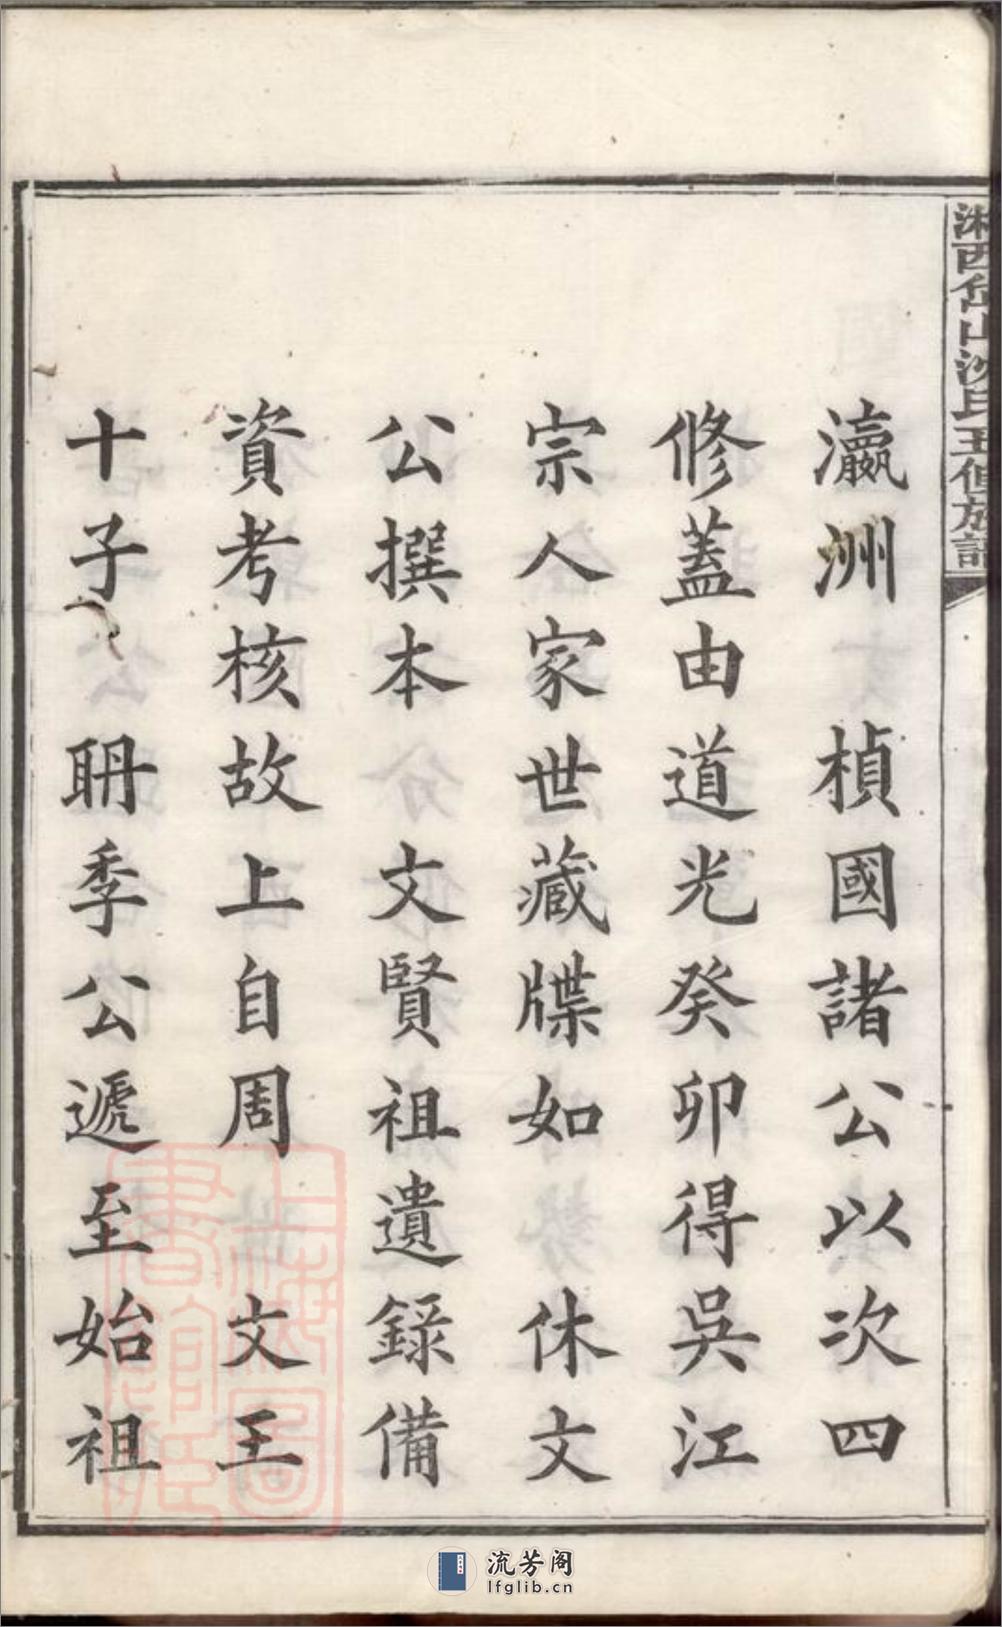 湘西岱山沈氏五修族譜
瀛洲 楨國諸公以次四
修蓋由道光癸卯得吳江
宗人家世藏牒如 休文
公撰本 文賢祖遺錄備
資考核故上自周 文王
十子 聃季公遞至始祖
上海圖書館藏
流芳阁
lfglib.cn